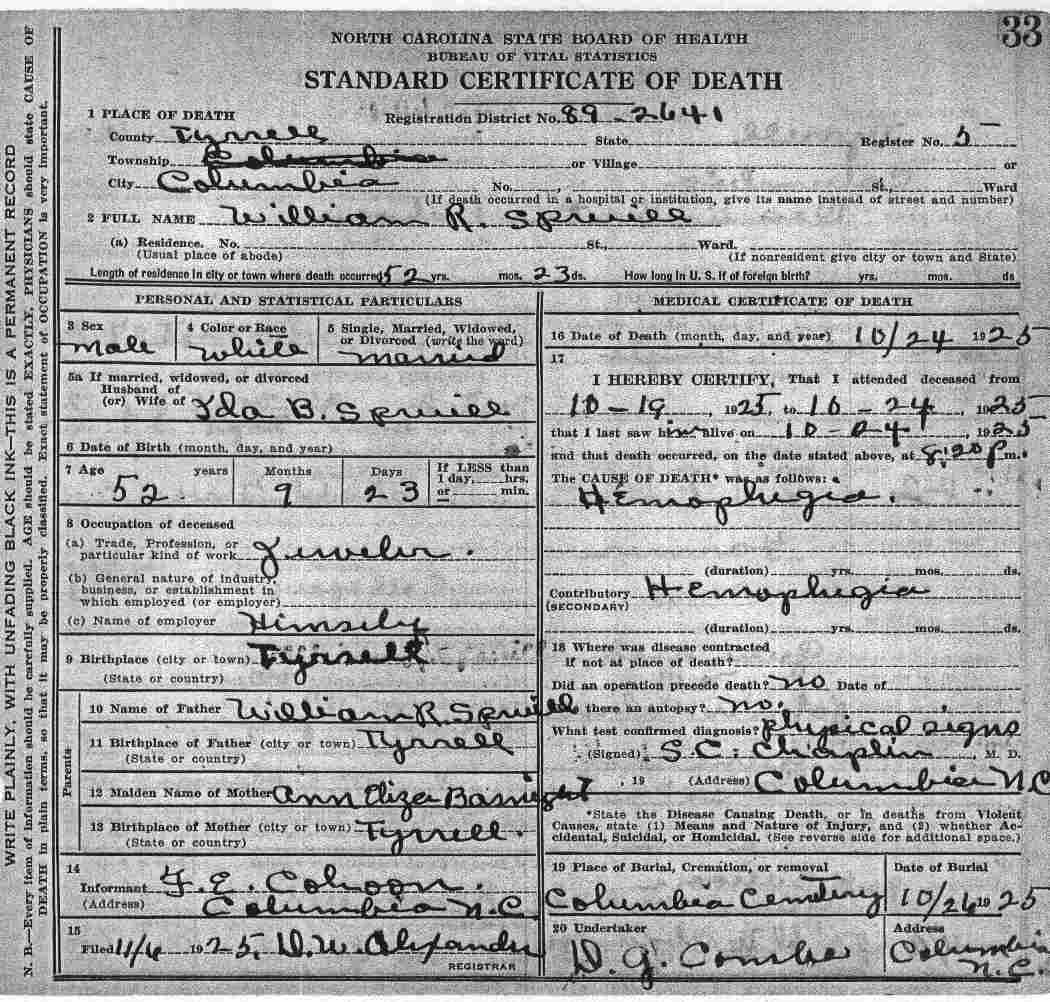 33
NORTH CAROLINA STATE BOARD OF HEALTH
BUREAU OF VITAL STATISTICS
STANDARD CERTIFICATE OF DEATH
1 PLACE OF DEATH Registration District No. 89-2641
County Tyrrell State Register No. 5
Township Columbia or Village or
City Columbia No. , St., Ward
(If death occurred in a hospital or institution, give its name instead of street and number)
2 FULL NAME William R. Spruill
(a) Residence. No. St., Ward.
(Usual place of abode) (If nonresident give city or town and State)
Length of residence in city or town where death occurred 52 yrs. mos. 23 ds. How long in U. S. if of foreign birth? yrs. mos. ds
PERSONAL AND STATISTICAL PARTICULARS
3 Sex 4 Color or Race 5 Single, Married, Widowed,
or Divorced (write the word)
Male White Married
5a If married, widowed, or divorced
Husband of
(or) Wife of Ida B. Spruill
6 Date of Birth (month, day, and year)
7 Age years Months Days If LESS than
1 day, hrs.
or min.
52 9 23
8 Occupation of deceased
(a) Trade, Profession, or
particular kind of work Jeweler.
(b) General nature of industry,
business, or establishment in
which employed (or employer)
(c) Name of employer Himself
9 Birthplace (city or town) Tyrrell
(State or country)
Parents
10 Name of Father William R. Spruill
11 Birthplace of Father (city or town) Tyrrell
(State or country)
12 Maiden Name of Mother Ann Eliza Basnight
13 Birthplace of Mother (city or town) Tyrrell.
(State or country)
14
Informant E. Cohoon.
(Address) Columbia N.C
15
Filed 11/6 1925. D. W. Alexander
REGISTRAR
MEDICAL CERTIFICATE OF DEATH
16 Date of Death (month, day, and year) 10/24 1925
17
I HEREBY CERTIFY, That I attended deceased from
10-19, 1925, to 10-24, 1925
that I last saw him alive on 10-24, 1925
and that death occurred, on the date stated above, at 8:20 P m.
The CAUSE OF DEATH* was as follows:
Hemophegia.
(duration) yrs. mos. ds.
Contributory Hemophegia
(SECONDARY)
(duration) yrs. mos. ds.
18 Where was disease contracted
if not at place of death?
Did an operation precede death? no Date of
there an autopsy? no.
What test confirmed diagnosis? physical signs
(Signed) S. C. Chaplin, M. D.
, 19 (Address) Columbia N.C
*State the Disease Causing Death, or in deaths from Violent
Causes, state (1) Means and Nature of Injury, and (2) whether Ac-
cidental, Suicidal, or Homicidal. (See reverse side for additional space.)
19 Place of Burial, Cremation, or removal Date of Burial
Columbia Cemetery 10/26 1925
20 Undertaker Address
D. G. Columbia
N.C.
WRITE PLAINLY, WITH UNFADING BLACK INK—THIS IS A PERMANENT RECORD
N. B.—Every item of information should be carefully supplied. AGE should be stated EXACTLY, PHYSICIANS should state CAUSE OF
DEATH in plain terms, so that it may be properly classified. Exact statement of OCCUPATION is very important.